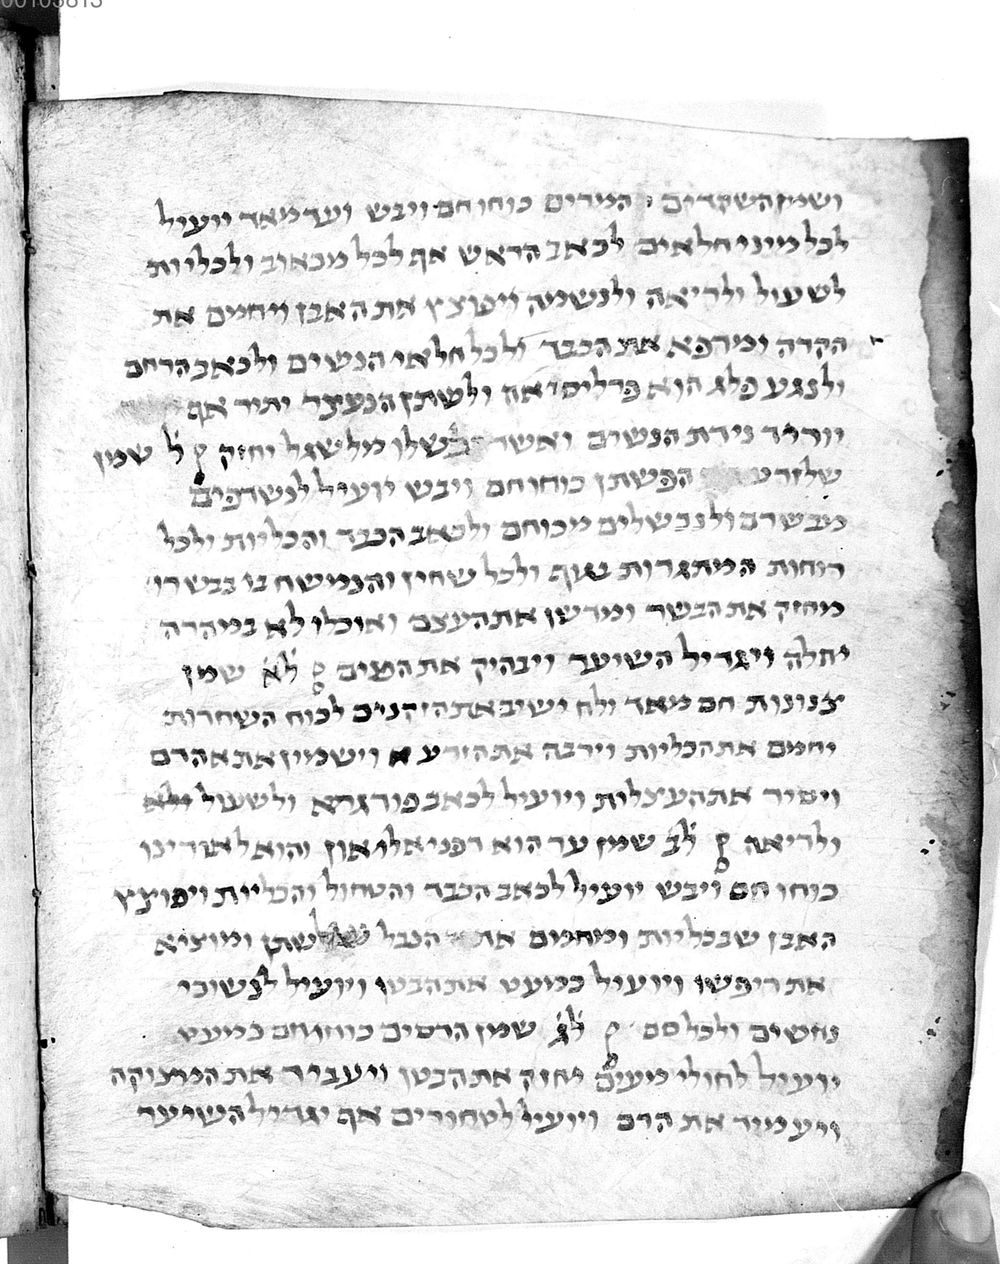 00103813
ושמן השקדים המרים כוחו חם ויבש ועד מאד יועיל
לכל מיני חלאים לכאב הראש אף לכל מכאוב ולכליות
לשעול ולריאה ולנשמה ויפוצץ את האבן ויחמם את
הקרה ומרפא את הכבד ולכל חלאי הנשים ולכאב הרחם
ולנגע פלג הוא פרליסיאה ולשתן הנעצר יתיר אף
יוריד נידת הנשים ואשר בשלו מלשגל יחזק פ̇ ל̇ שמן
שלזרע הפשתן כוחו חם ויבש יועיל לנשרפים
מבשרם ולנכשלים מכוחם ולכאב הכבד והכליות ולכל
רוחות המתגרות בגוף ולכל שחין והנמשח בו בבשרו
מחזק את הבשר ומדשן את העצם ואוכלו לא במהרה
יחלה ויגדיל השיער ויבהיק את הפנים פ̇ לא̇ שמן
צנונות חם מאד ולח ישיב את הזקנים לכוח השחרות
יחמם את הכליות וירבה את הזרע וישמין את אהדם
ויסיר את העצלות ויועיל לכאב פודגרא ולשעול
ולריאה פ̇ לב̇ שמן ער הוא דפניאלאון והוא לאורינו
כוחו חם ויבש יועיל לכאב הכבד והטחול והכליות ויפוצץ
האבן שבכליות ומחמם את הנבל שלשתן ומוציא
את ריפשו ויועיל כמעט את הבטן ויועיל לנשוכי
נחשים ולכל סם פ̇ לג̇ שמן הדסים כוחו חם כמעט
יועיל לחולי מעים יחזק את הבטן ויעביר את המצוקה
ויעמיד את הדם ויועיל לטחורים אף יגדיל השיער